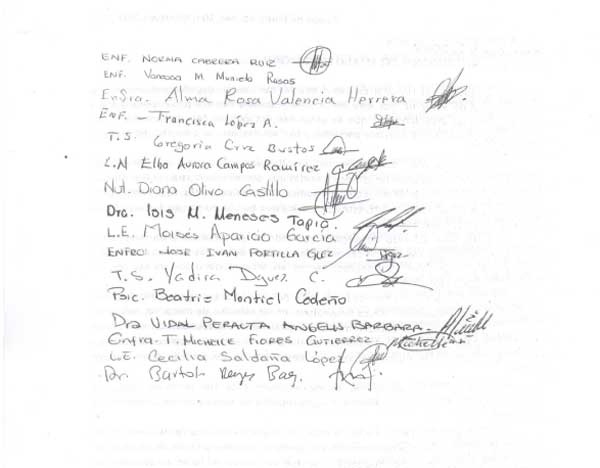 ENF. NORMA CABRERA RUIZ
ENF. Vanessa M. Munieto Rosas
Enfra. Alma Rosa Valencia Herrera
ENF. - Francisca López A.
T.S. Gregoria Cruz Bustos
L.N Elba Aurora Campos Ramirez
Nut. Diana Oliva Castillo
Dra. Isis M. Meneses Tapia.
L.E. Moisés Aparicio García
ENFRO. JOSE IVAN PORTILLA GLEZ
T.S. Yadira C.
Psic. Beatriz Montiel Cedeño
Dra VIDAL PERALTA ANGELA BARBARA.
Enfra. T. MICHELLE FLORES GUTIERREZ
L.E. Cecilia Saldaña López
Dr. Bartolo Reyes